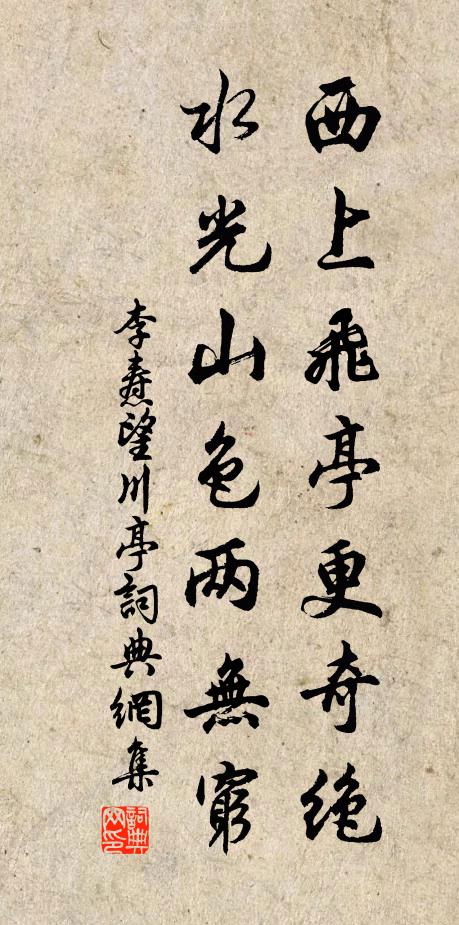 西上飛亭更奇絶
水光山色两無窮
李燾望川亭詞典網集
詞典网印